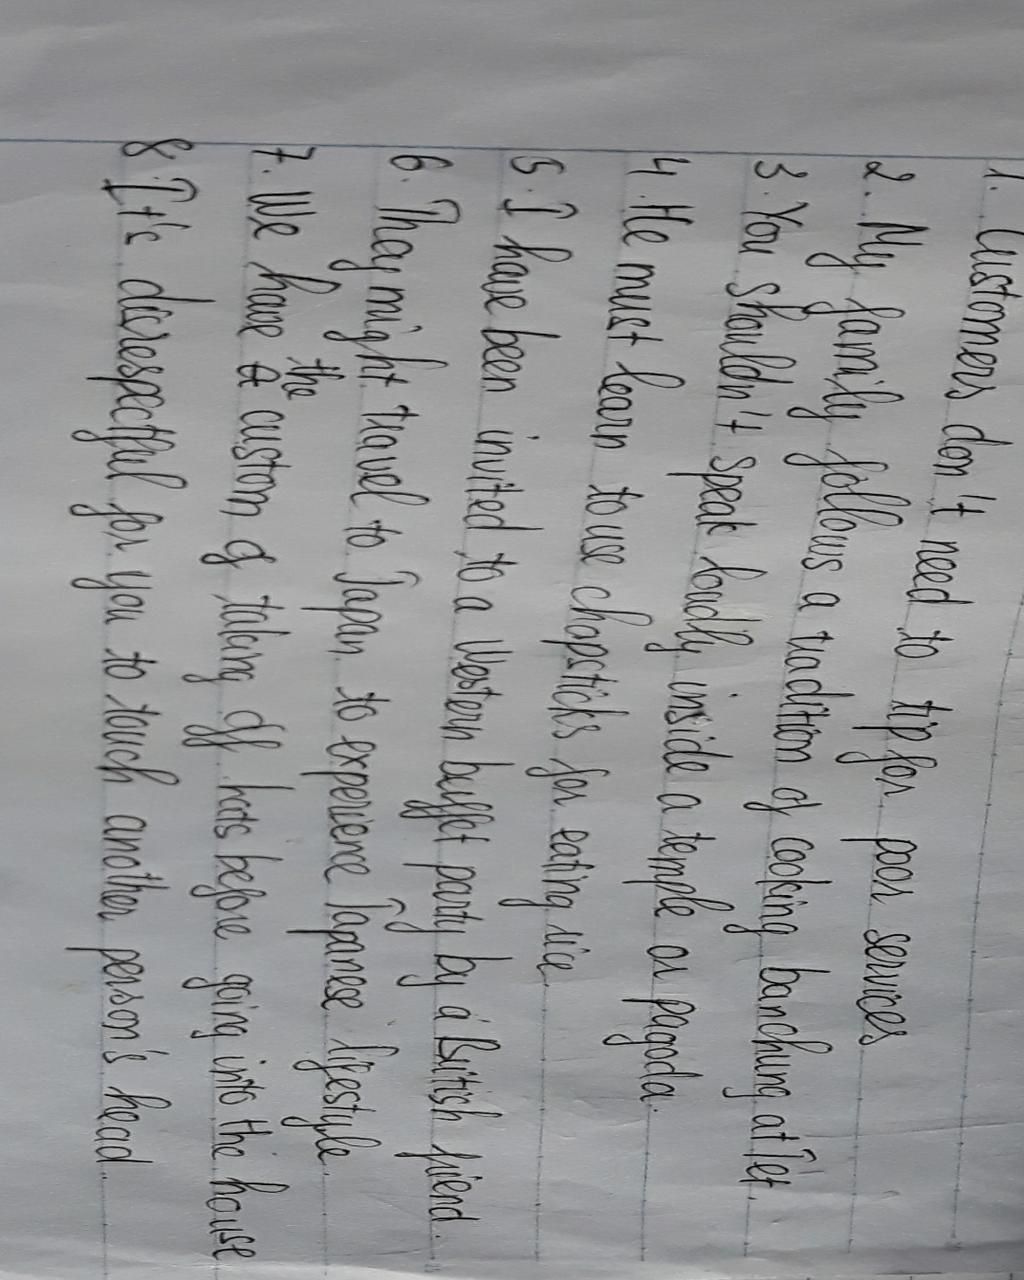 1. Customers don't need to tip for poor services
2. My family follows a tradition of cooking banchung at Tet.
3. You shouldn't speak loudly inside a temple or pagoda.
4. He must learn to use chopsticks for eating rice.
5. I have been invited to a Western buffet party by a British friend.
6. They might travel to Japan to experience Japanese lifestyle.
7. We have the custom of taking off hats before going into the house
8. It's disrespectful for you to touch another person's head.